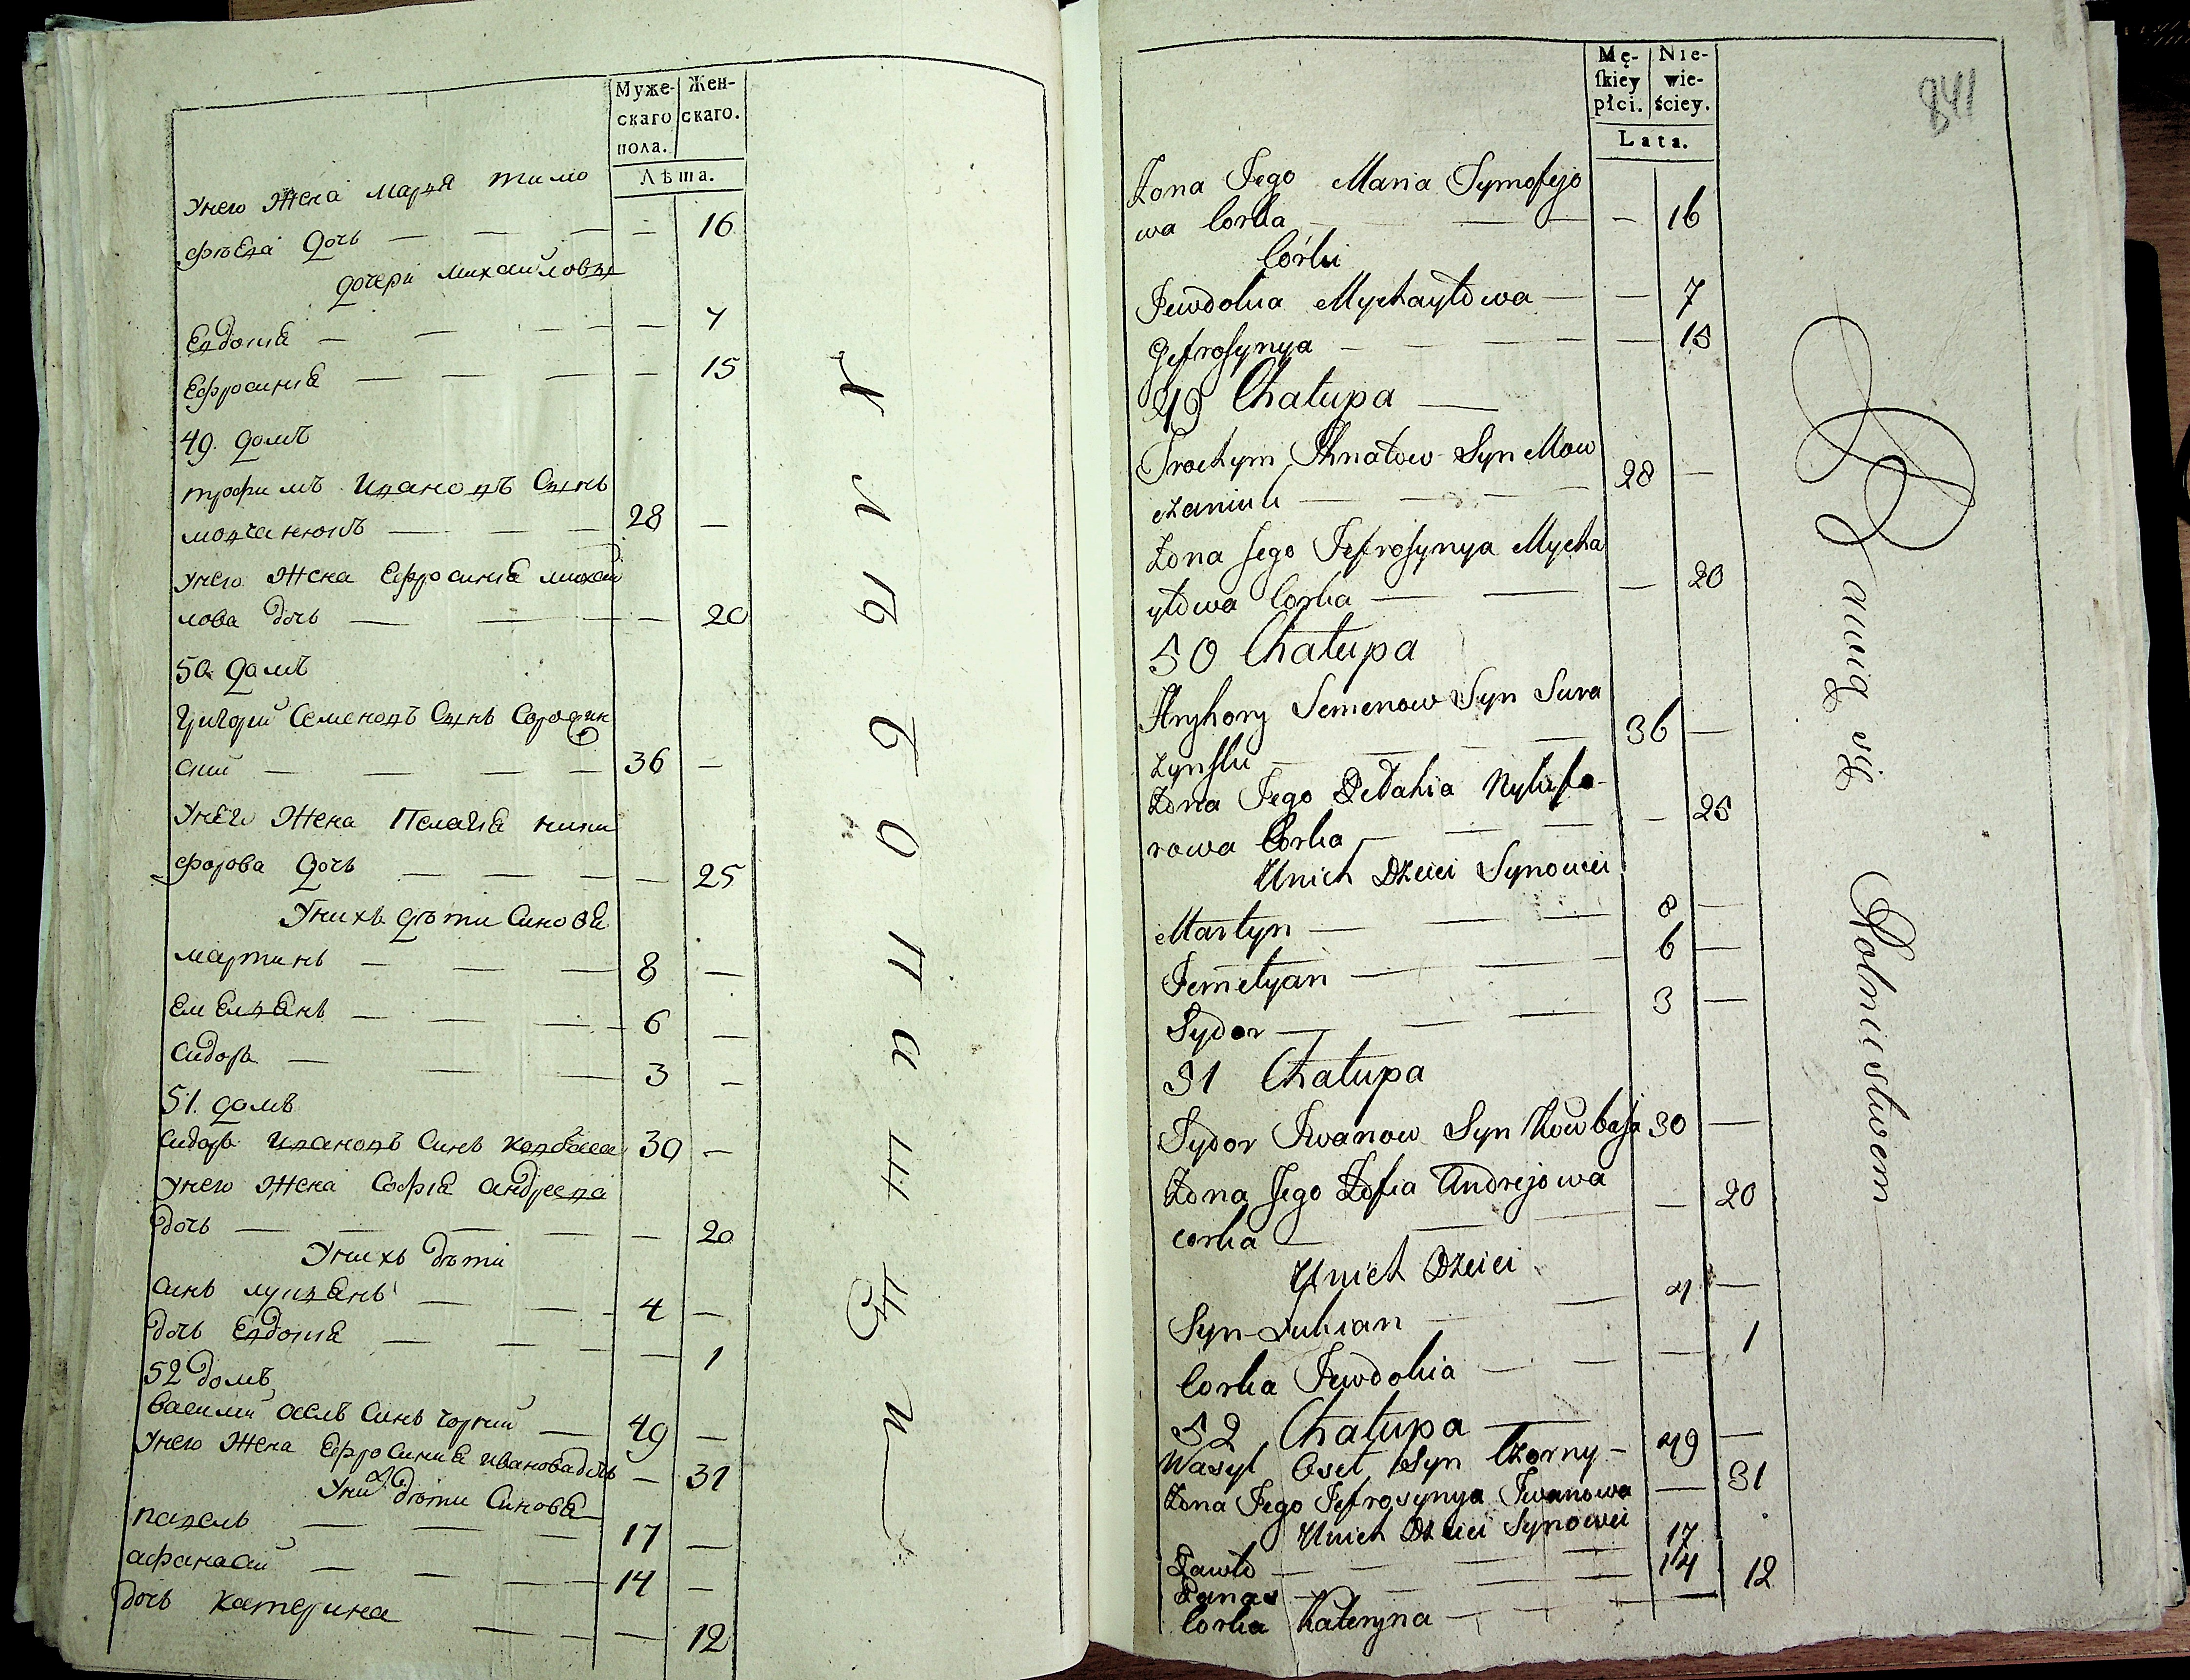 Муже-
скаго
пола.
Жен-
скаго.
Лѣта.
Унего Жена Марꙗ тимо
фѣева дочь — — — — 16
дочери Михайловы
Евдокиꙗ — — — — 7
Ефросиниꙗ — — — — 15
49. домъ
трофимъ Ивановъ Сынъ
мовчанюкъ — — — 28 —
Унего Жена Ефросиниꙗ михай
лова дочь — — — — 20
50 домъ
Григорий Семеновъ Сынъ Сорочин
ский — — — — 36 —
Унего Жена Пелагиꙗ ники
форова дочь — — — — 25
Унихъ дѣти Синовꙗ
мартинъ — — — 8 —
Емелꙗнъ — — — 6 —
Сидоръ — — — 3 —
51. домъ
Сидоръ Ивановъ Синъ Ковбаса 30 —
Унего Жена Софиꙗ андреева
дочь — — — — 20
Унихъ дѣти
Синъ лукꙗнъ — — 4 —
дочь Евдокиꙗ — — — 1
52 домъ
Василий Синъ чорний — 49 —
Унего Жена Ефросиниꙗ Иванова дочь — 31
Уних дѣти Синовꙗ
павелъ — — — 17 —
афанасий — — — 14 —
дочь катерина — — — 12
Mę-
ſkiey
płci.
Nie-
wie-
ściey.
Lata.
841
Żona Jego Maria Tymofejo
wa Corka — — — — 16
Córki
Jewdokia Mychayłowa — — 7
Jefrosynya — — — — — 15
49 Chałupa —
Trochym Ihnatow Syn Mow
czaniuk — — — — 28 —
Żona Jego Jefrosynya Mycha
yłowa Corka — — — 20
50 Chałupa
Hryhory Semenow Syn Suro
czynski — — — — 36 —
Żona Jego Pełahia Nykifo-
rowa Corka — — — — 25
Unich Dzieci Synowei
Martyn — — — 8 —
Jemełyan — — — 6 —
Sydor — — — 3 —
51 Chałupa
Sydor Iwanow Syn Kowbasa 30 —
Żona Jego Zofia Andrejowa
corka — — — — 20
Unich Dzieci
Syn Lukian — — 4 —
Corka Jewdokia — — — 1
52 Chałupa —
Wasyl Syn Czorny — 49 —
Żona Jego Jefrosynya Iwanowa — 31
Unich Dzieci Synowei
Pawło — — — 17
Panas — — — 14
Corka Kateryna — — — 12
Rolnictwem